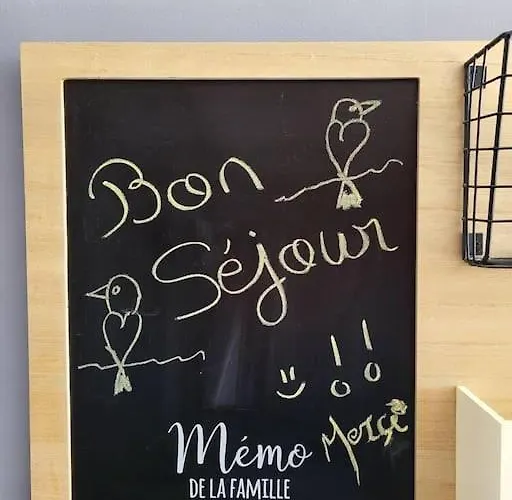 Bon
Séjour
!!
Merçi
Mémo
DE LA FAMILLE